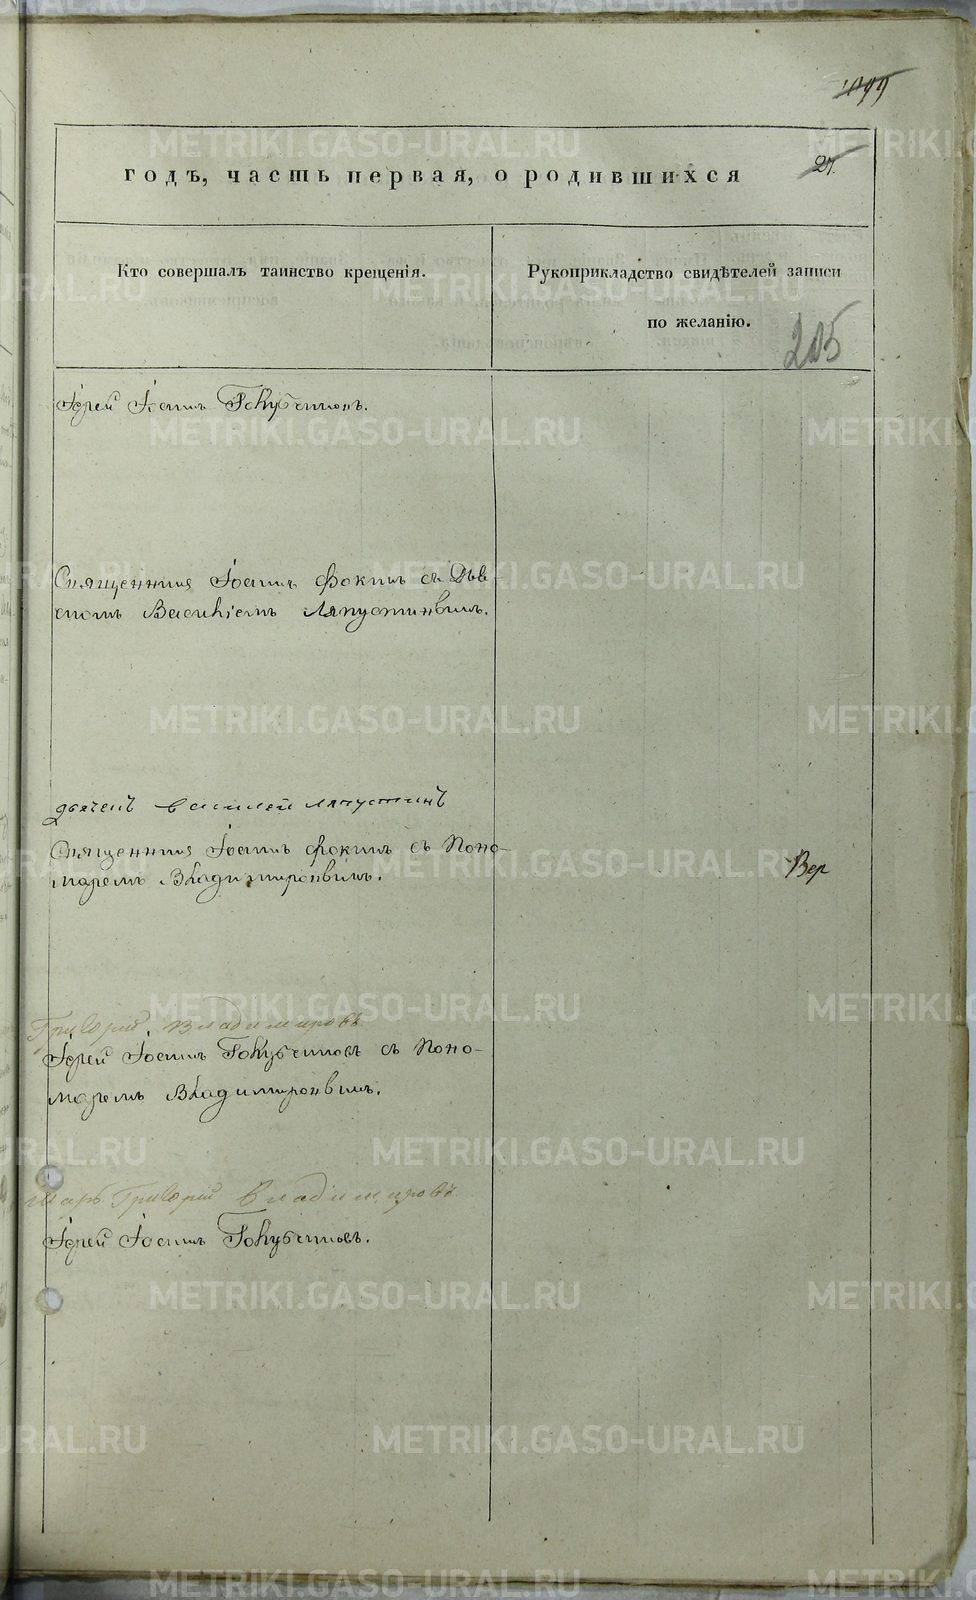 1899
годъ, часть первая, о родившихся
27.
Кто совершалъ таинство крещенія.
Рукоприкладство свидѣтелей записи
по желанію.
205
Іерей Іоаннъ Голубчиковъ.
Священникъ Іоаннъ Фокинъ съ Дья-
комъ Василіемъ Ляпустинымъ.
дьячекъ василей ляпустинъ
Священникъ Іоаннъ Фокинъ съ Поно-
маремъ Владимировымъ.
Вер
Григорий Владимировъ
Іерей Іоаннъ Голубчиковъ съ Поно-
маремъ Владимировымъ.
марь Григорий Владимировъ
Іерей Іоаннъ Голубчиковъ.
METRIKI.GASO-URAL.RU